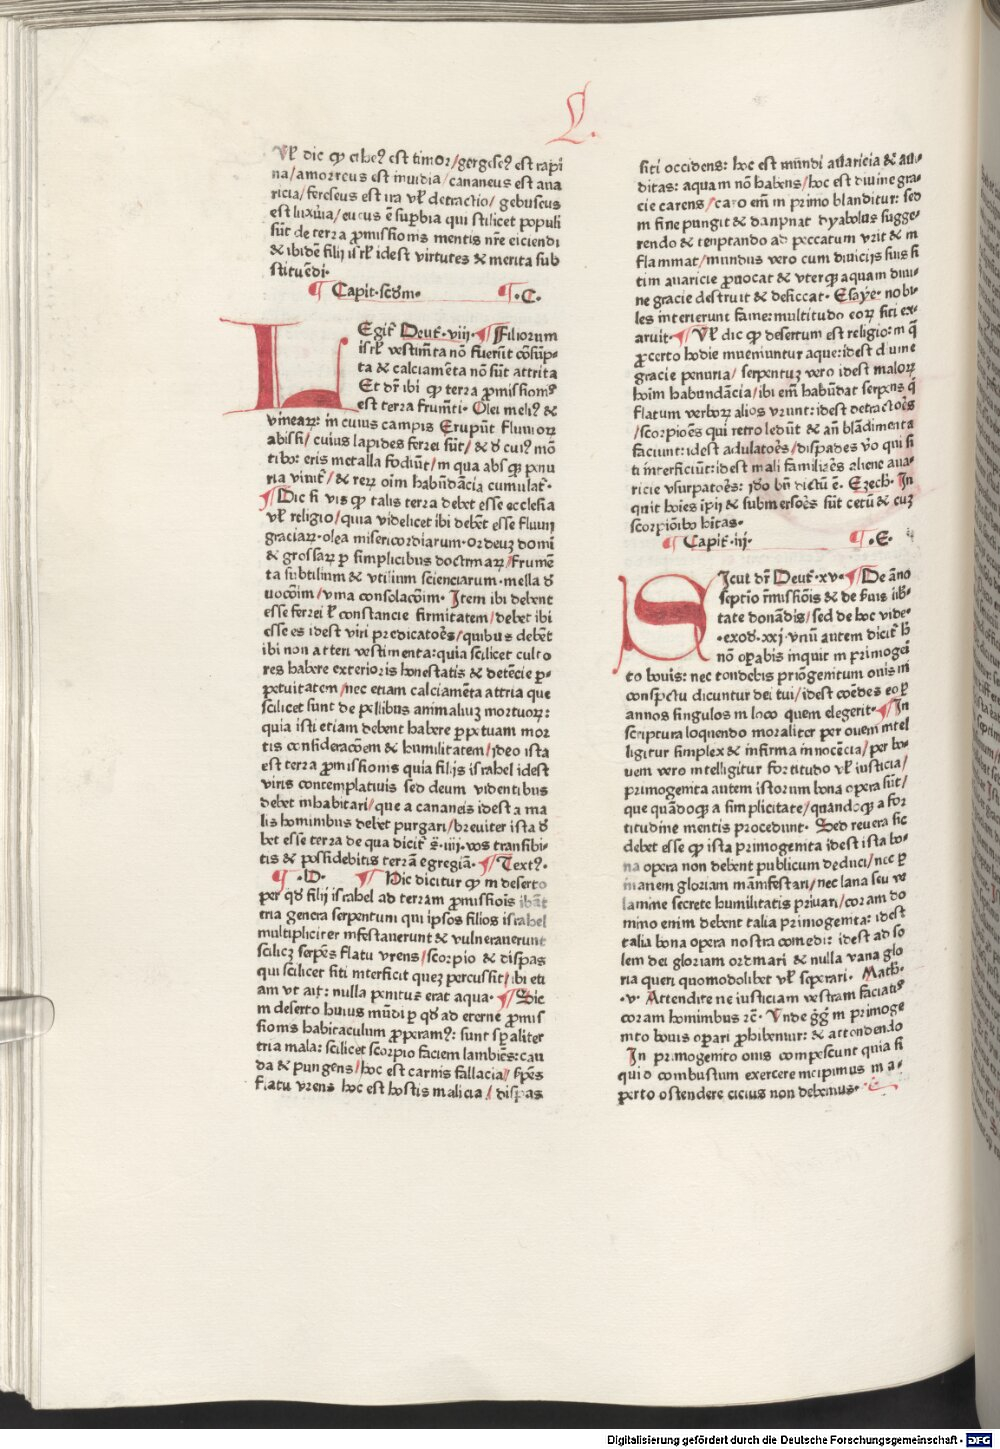 L.
Vl' dic ꝙ etheꝰ est timor/gergeseꝰ est rapi
na/amorreus est inuidia/cananeus est aua
ricia/fereseus est ira vl' detractio/gebuseus
est luxuria/eueus ē supbia qui scilicet populi
sūt de terra pmissionis mentis nr̄e eiciendi
& ibidē filij isrl' idest virtutes & merita sub
stituēdi.
¶ Capit. scdm. ¶ .C.
LEgit̄ Deut̄. viij. ¶ Filiorum
isrl' vestimēta nō fuerūt cōsūp-
ta & calciamēta nō sūt attrita
Et dr̄ ibi ꝙ terra pmissionis
est terra frumēti. Olei mellis &
vinearꝝ: in cuius campis Erupūt fluuiorꝝ
abissi/cuius lapides ferrei sūt/& d̄ cuiꝰ mō
tibꝰ eris metalla fodiūt/in qua absqꝫ penu
ria viuit̄/& rerꝝ oīm habūdācia cumulat̄.
¶ Dic si vis ꝙ talis terra debet esse ecclesia
vl' religio/quia videlicet ibi debēt esse fluuij
graciarꝝ. olea misericordiarum. ordeuꝫ domī
& grossarꝝ p simplicibus doctrinarꝝ/frumē
ta subtilium & vtilium scienciarum. mella d̄
uocōim/vina consolacōim. Item ibi debent
esse ferrei l' constancie firmitatem/debēt ibi
esse es idest viri predicatorēs/quibus debēt
ibi non atteri vestimenta: quia scilicet culto
res habere exterioris honestatis & detēcie p-
petuitatem/nec etiam calciamēta attria que
scilicet sunt de pellibus animaliuꝫ mortuorꝝ:
quia isti etiam debent habere ppetuam mor
tis consideracōem & humilitatem/ideo ista
est terra pmissionis quia filijs israhel idest
viris contemplatiuis seo deum videntibus
debet inhabitari/que a cananeis idest a ma
lis hominibus debet purgari/breuiter ista d̄
bet esse terra de qua dicit̄ .iiij. vos transsibi-
tis & possidebitis terrā egregiā. ¶ Textꝰ.
¶ .D. ¶ Hic dicitur ꝙ in deserto
per qd̄ filij israhel ad terram pmissiois ibāt
tria genera serpentum qui ipsos filios israhel
multipliciter infestauerunt & vulnerauerunt
scilicꝫ serpēs flatu vrens/scorpio & dispas
qui scilicet siti interficit queꝫ percussit/ibi eti
am vt ait: nulla penitus erat aqua. ¶ Sic
in deserto huius mūdi p qd̄ ad eterne pmis
sionis habitaculum pperamꝰ: sunt spaliter
tria mala: scilicet scorpio faciem lambiēs: cau
da & pungens/hoc est carnis fallacia/ spēs
flatu vrens hoc est hostis malicia/ dispas
siti occidens: hoc est mūndi auaricia & aui-
ditas: aquam nō habens/hoc est diuine gra-
cie carens/caro em̄ in primo blanditur: sed
in fine pungit & danpnat dyabolus sugge-
rendo & tenptando ad peccatum vrit & in
flammat/mundus vero cum diuicijs suis si
tim auaricie puocat & vterqꝫ aquam diui-
ne gracie destruit & desiccat. Esaye. nobi-
les interierunt fame: multitudo eorꝫ siti ex-
aruit. ¶ Vl' dic ꝙ desertum est religio: in q̄
pcerto hodie inueniuntur aque: idest diuine
gracie penuria/ serpentuꝫ vero idest malorꝫ
hoim habundācia/ibi em̄ habūdat serpens q̄
flatum verborꝫ alios vrunt: idest detractoēs
/scorpioēs qui retro ledūt & an̄ blādimenta
faciunt: idest adulatoēs/dispades vo qui si
ti interficiūt: idest mali familiaēs aliene aua-
ricie vsurpatoēs: ido bn̄ dictū ē. Ezech. In
quit hoies ipij & submersoēs sūt cetū & cuꝫ
scorpiōibꝰ hītas.
¶ Capit̄. iij. ¶ .E.
SIcut dr̄ Deut̄. xv. ¶ De āno
septio rmissiōis & de suis lib-
tate donādis/sed de hoc vide.
.exod. xxj. vnū autem dicit̄ h̄
nō opabis inquit in primogeni
to bouis: nec tondebis primogenitum ouis in
conspectu dicuntur dei tui/idest coēdes eo p
annos singulos in loco quem elegerit. ¶ In
scriptura loquendo moraliter per ouem intel
ligitur simplex & infirma innocēcia/per bo-
uem vero intelligitur fortitudo vl' iusticia/
primogenita autem istorum bona opera sūt/
que quādoqꝫ a simplicitate/quandoqꝫ a for
titudine mentis procedunt. Sed reuera sic
debet esse ꝙ ista primogenita idest ista bo-
na opera non debent publicum deduci/nec p
inanem gloriam māifestari/nec lana seu ve
lamine secrete humilitatis priuari/coram do
mino enim debent talia primogenita: idest
talia bona opera nostra comedi: idest ad so
lem dei gloriam ordinari & nulla vana glo
ria queri quomodolibet vl' seperari. Math.
.v. Attendite ne iusticiam vestram faciatis
coram hominibus rc̄. Vnde gḡ in primoge
nito bouis opari phibentur: & attondendo
In primogenito ouis compescunt quia si
quid combustum exercere incipimus in a-
perto ostendere cicius non debemus.
Digitalisierung gefördert durch die Deutsche Forschungsgemeinschaft - DFG